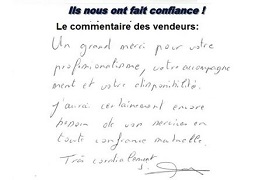 Ils nous ont fait confiance !
Le commentaire des vendeurs:
Un grand merci pour votre
professionnalisme, votre accompagne
ment et votre disponibilité.
J'aurai certainement encore
besoin de vos services en
toute confiance mutuelle.
Très cordialement